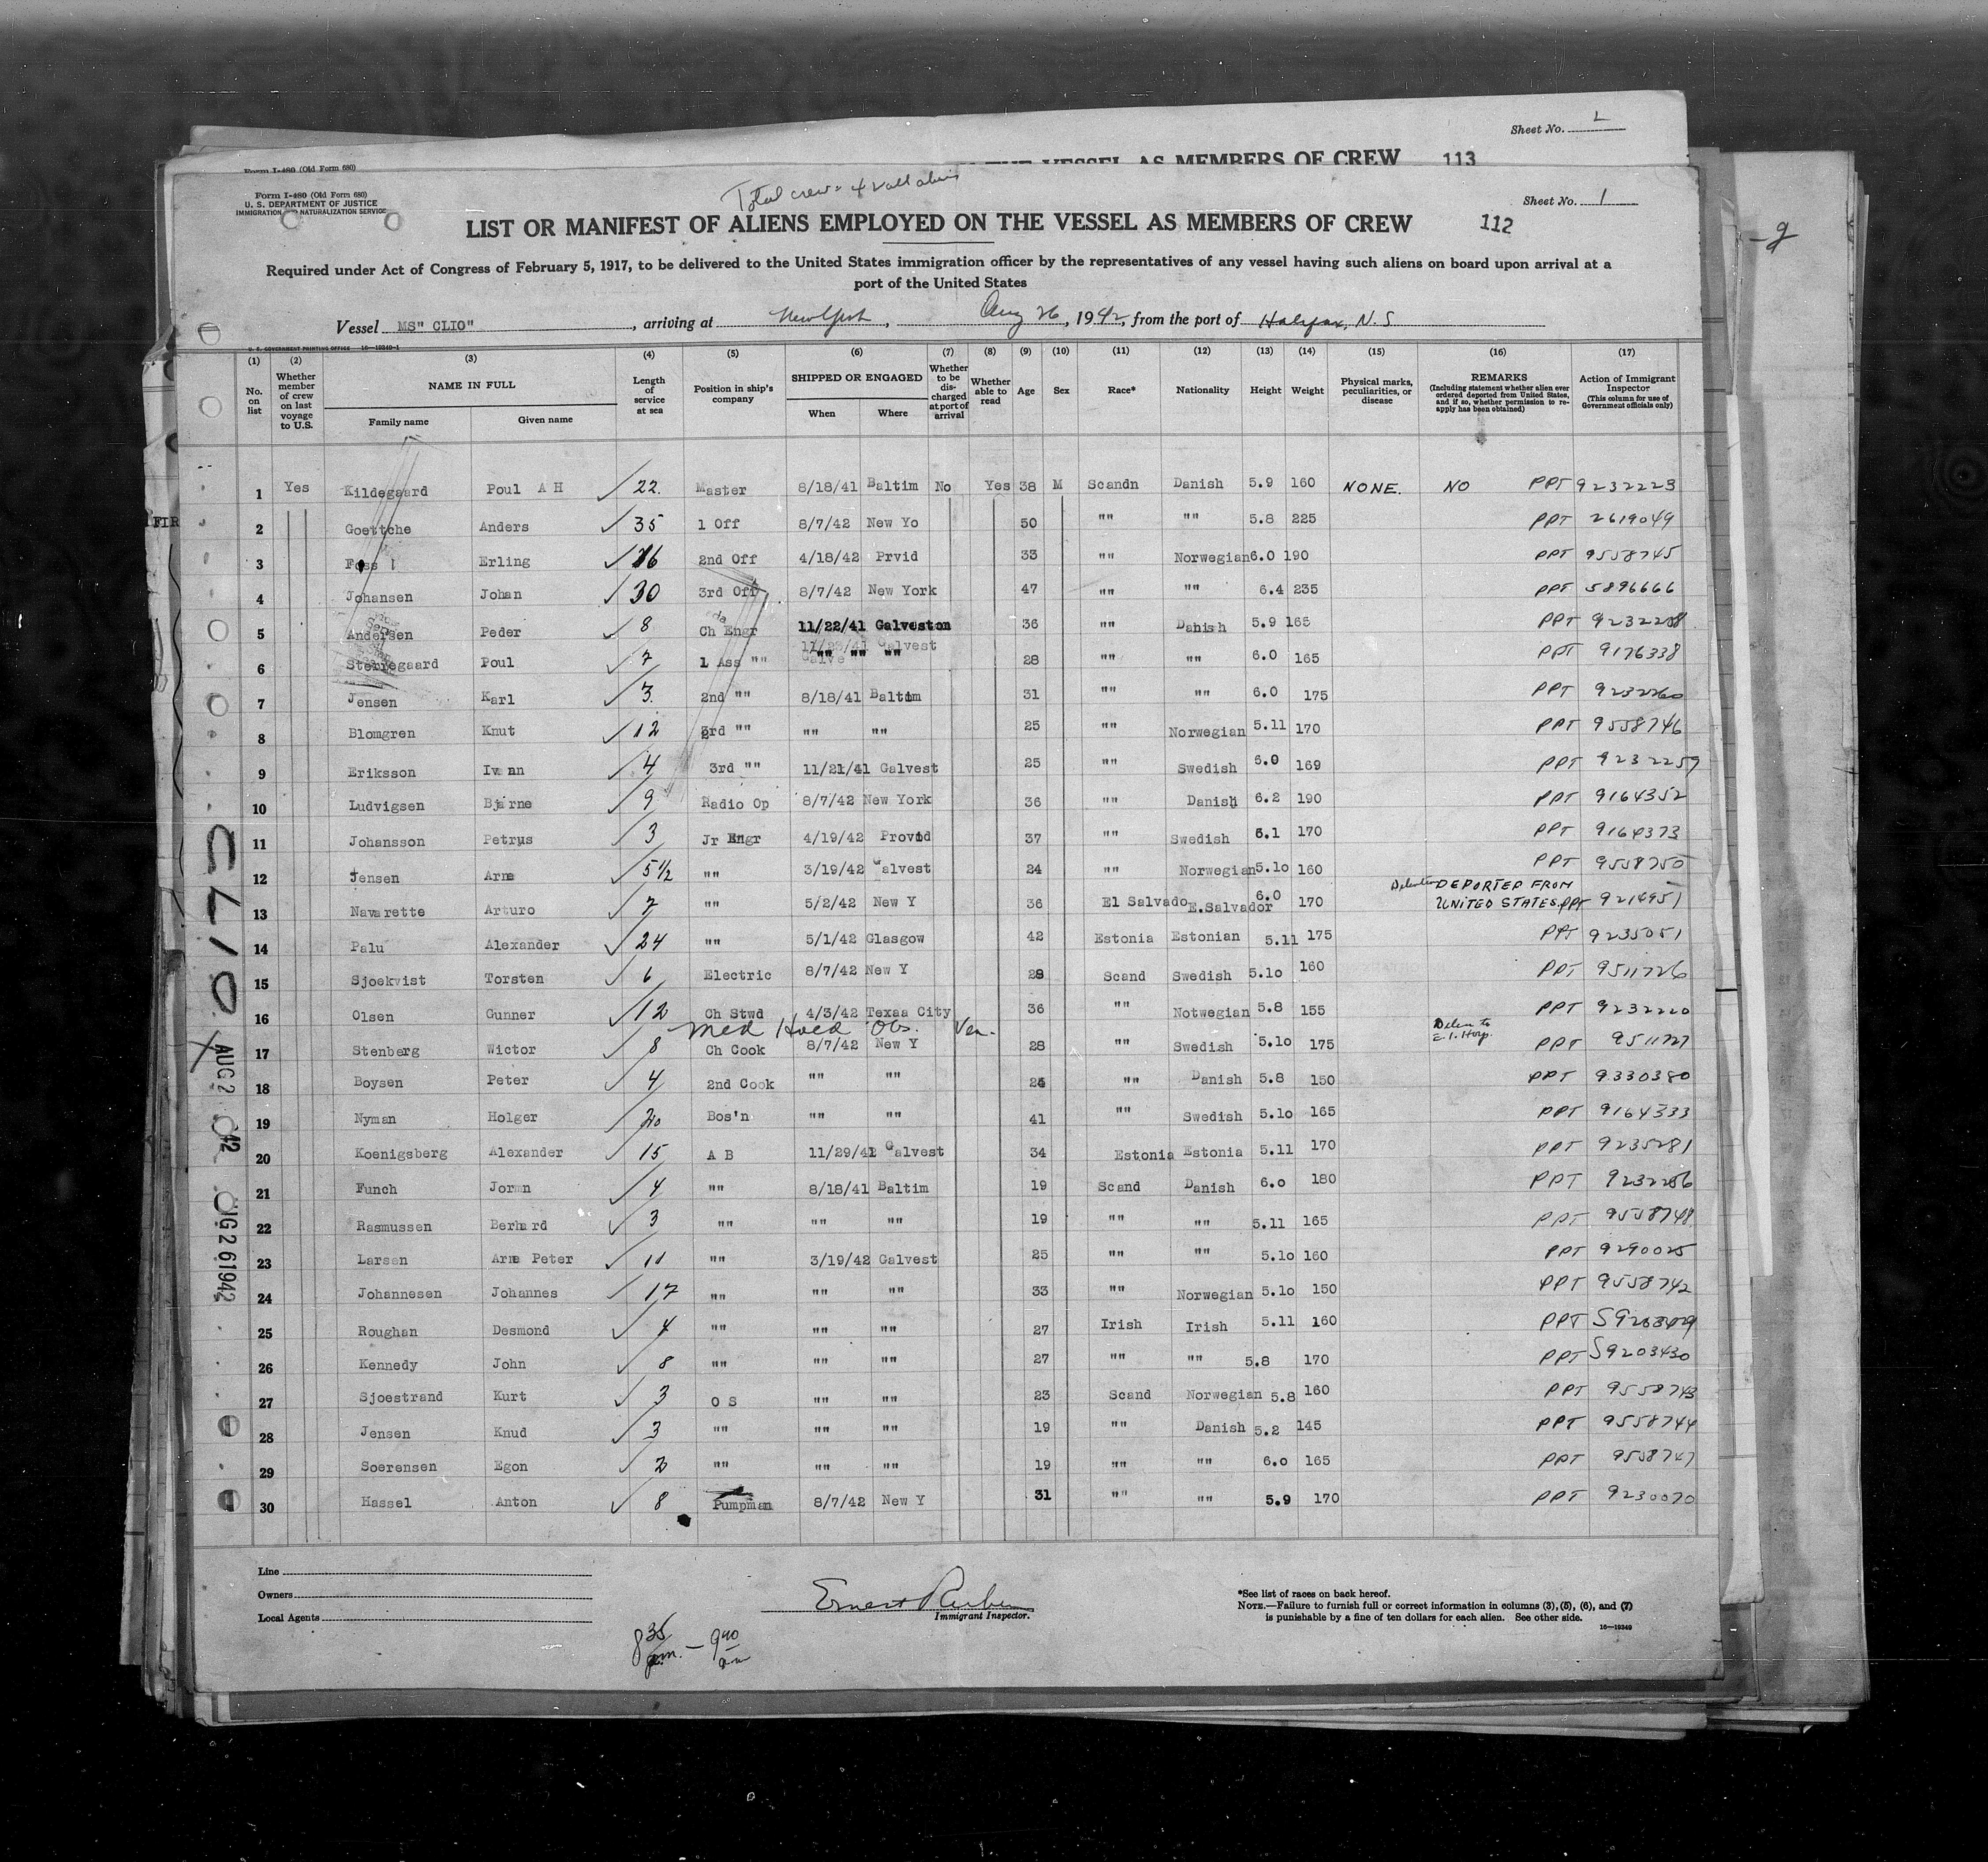 Sheet No. L
Form I-480 (Old Form 680)
THE VESSEL AS MEMBERS OF CREW 113
Form I-480 (Old Form 680)
U. S. DEPARTMENT OF JUSTICE
IMMIGRATION AND NATURALIZATION SERVICE
Total crew
Sheet No. 1
LIST OR MANIFEST OF ALIENS EMPLOYED ON THE VESSEL AS MEMBERS OF CREW 112
Required under Act of Congress of February 5, 1917, to be delivered to the United States immigration officer by the representatives of any vessel having such aliens on board upon arrival at a
port of the United States
Vessel MS" CLIO", arriving at New York, Aug 26, 1942, from the port of Halifax, N.S
U. S. GOVERNMENT PRINTING OFFICE 16—19349-1
(1) (2) (3) (4) (5) (6) (7) (8) (9) (10) (11) (12) (13) (14) (15) (16) (17)
No. on list
Whether member of crew on last voyage to U.S.
NAME IN FULL
Family name Given name
Length of service at sea
Position in ship's company
SHIPPED OR ENGAGED
When Where
Whether to be discharged at port of arrival
Whether able to read
Age Sex Race* Nationality Height Weight
Physical marks, peculiarities, or disease
REMARKS
(Including statement whether alien ever ordered deported from United States, and if so, whether permission to reapply has been obtained)
Action of Immigrant Inspector
(This column for use of Government officials only)
1 Yes Kildegaard Poul A H 22. Master 8/18/41 Baltim No Yes 38 M Scandn Danish 5.9 160 NONE. NO PPT 9232223
2 Goettche Anders 35 1 Off 8/7/42 New Yo 50 "" "" 5.8 225 PPT 2619049
3 Foss Erling 16 2nd Off 4/18/42 Prvid 33 "" Norwegian 6.0 190 PPT 9558745
4 Johansen Johan 30 3rd Off 8/7/42 New York 47 "" "" 6.4 235 PPT 5896666
5 Andersen Peder 8 Ch Engr 11/22/41 Galveston 36 "" Danish 5.9 165 PPT 9232258
6 Sterregaard Poul 7 1 Ass "" "" "" "" 28 "" "" 6.0 165 PPT 9176338
7 Jensen Karl 3. 2nd "" 8/18/41 Baltim 31 "" "" 6.0 175 PPT 9232260
8 Blomgren Knut 12 3rd "" "" "" 25 "" Norwegian 5.11 170 PPT 9558746
9 Eriksson Ivan 4 3rd "" 11/21/41 Galvest 25 "" Swedish 6.0 169 PPT 9232259
10 Ludvigsen Bjarne 9 Radio Op 8/7/42 New York 36 "" Danish 6.2 190 PPT 9164352
11 Johansson Petrus 3 Jr Engr 4/19/42 Provid 37 "" Swedish 6.1 170 PPT 9164373
12 Jensen Arne 5½ "" 3/19/42 Galvest 24 "" Norwegian 5.10 160 PPT 9558750
13 Navarette Arturo 7 "" 5/2/42 New Y 36 El Salvado E.Salvador 6.0 170 Detention DEPORTED FROM UNITED STATES. PPT 9214951
14 Palu Alexander 24 "" 5/1/42 Glasgow 42 Estonia Estonian 5.11 175 PPT 9235051
15 Sjoekvist Torsten 6 Electric 8/7/42 New Y 28 Scand Swedish 5.10 160 PPT 9511726
16 Olsen Gunner 12 Ch Stwd 4/3/42 Texaa City 36 "" Notwegian 5.8 155 PPT 9232220
Med Hold Obs. Ven.
17 Stenberg Wictor 8 Ch Cook 8/7/42 New Y 28 "" Swedish 5.10 175 E.I. Hosp. PPT 9511727
18 Boysen Peter 4 2nd Cook "" "" 24 "" Danish 5.8 150 PPT 9330380
19 Nyman Holger 20 Bos'n "" "" 41 "" Swedish 5.10 165 PPT 9164333
20 Koenigsberg Alexander 15 A B 11/29/41 Galvest 34 Estonia Estonia 5.11 170 PPT 9235281
21 Funch Joran 4 "" 8/18/41 Baltim 19 Scand Danish 6.0 180 PPT 9232256
22 Rasmussen Berhard 3 "" "" "" 19 "" "" 5.11 165 PPT 9558748
23 Larsen Arne Peter 11 "" 3/19/42 Galvest 25 "" "" 5.10 160 PPT 9290025
24 Johannesen Johannes 17 "" "" "" 33 "" Norwegian 5.10 150 PPT 9558742
25 Roughan Desmond 4 "" "" "" 27 Irish Irish 5.11 160 PPT
26 Kennedy John 8 "" "" "" 27 "" "" 5.8 170 PPT S9203430
27 Sjoestrand Kurt 3 O S "" "" 23 Scand Norwegian 5.8 160 PPT 9558743
28 Jensen Knud 3 "" "" "" 19 "" Danish 5.2 145 PPT 9558744
29 Soerensen Egon 2 "" "" "" 19 "" "" 6.0 165 PPT 9558747
30 Hassel Anton 8 Pumpman 8/7/42 New Y 31 "" "" 5.9 170 PPT 9230070
CLIO
AUG 2 42
UG 26 1942
FIR
Line
Owners
Local Agents
Ernest Ruben
Immigrant Inspector.
8 35 pm. — 9 40 am
*See list of races on back hereof.
NOTE.—Failure to furnish full or correct information in columns (3), (5), (6), and (7)
is punishable by a fine of ten dollars for each alien. See other side.
16—19349